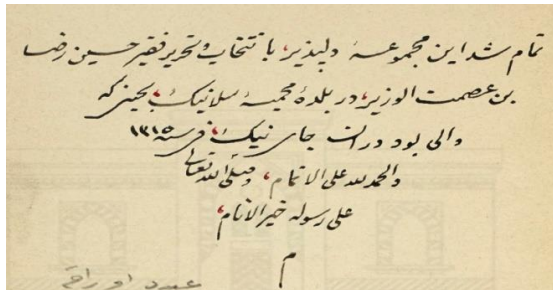 تمام شد این مجموعهٔ دلپذیر، با انتخاب و تحریر فقیر حسین رضا
بن عصمت الوزیر، در بلدهٔ محمیهٔ سلانیک، بحینی که
والی بود در ان جای نیک، فی سنه ۱۳۱۵
والحمد لله علی الاتمام، وصلی الله تعالی
علی رسوله خیر الانام،
م
عدد اوراق